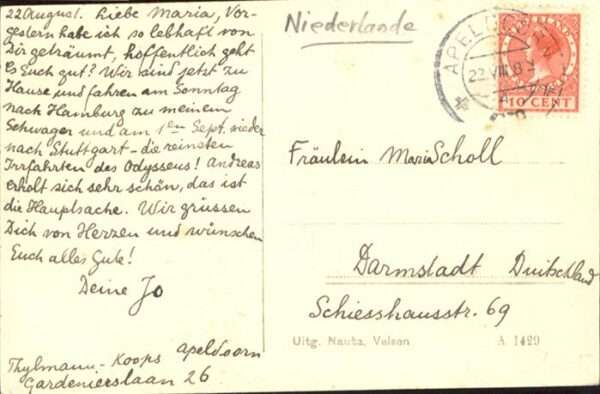 22 August. Liebe Maria, Vor-
gestern habe ich so lebhaft von
Dir geträumt, hoffentlich geht
Es Euch gut? Wir sind jetzt zu
Hause und fahren am Sonntag
nach Hamburg zu meinem
Schwager und am 1en Sept. wieder
nach Stuttgart - die reinsten
Irrfahrten des Odysseus! Andreas
erholt sich sehr schön, das ist
die Hauptsache. Wir grüssen
Dich von Herzen und wünschen
Euch alles Gute!
Deine Jo
Thylmann - Koops Apeldoorn
Gardenierslaan 26
Niederlande
APELDOORN
22 VIII
10 CENT
Fräulein Maria Scholl
Darmstadt Duitschland
Schiesshausstr. 69
Uitg. Nauta, Velsen A 1429